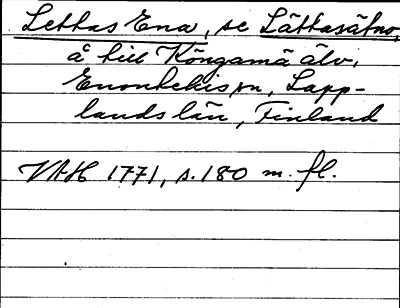 Lettas Ena, se Lättasätno,
å till Köngämä älv,
Enontekis sn, Lapp-
lands län, Finland
VAH 1771, s. 180 m. fl.